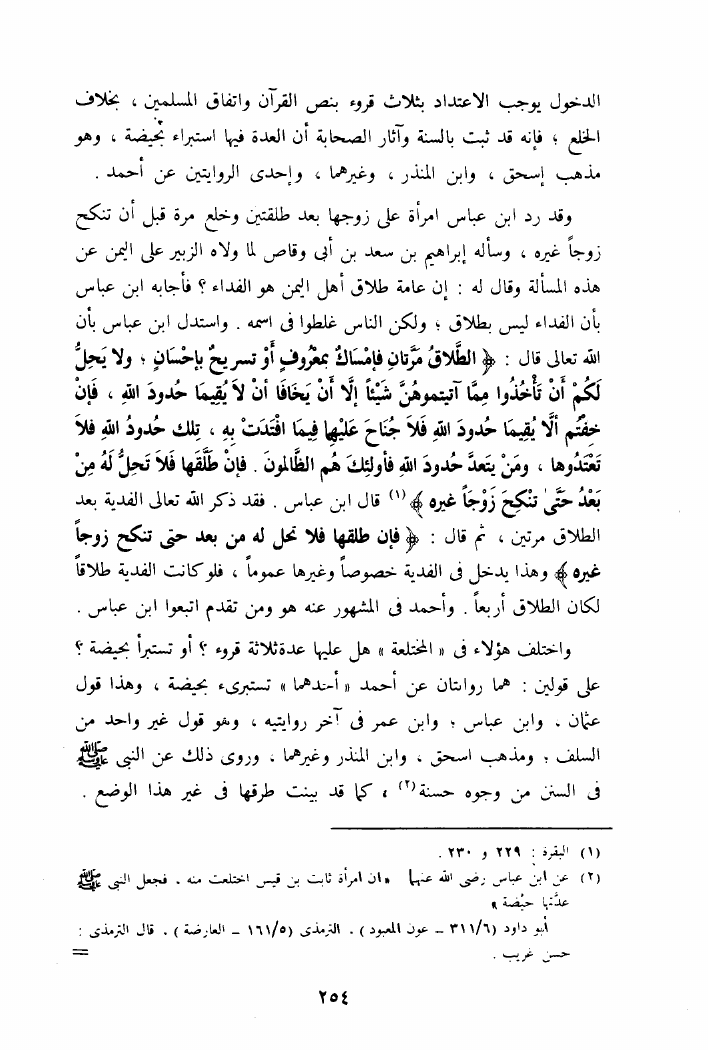 الدخول يوجب الاعتداد بثلاث قروء بنص القرآن واتفاق المسلمين ، بخلاف
الخلع ؛ فإنه قد ثبت بالسنة وآثار الصحابة أن العدة فيها استبراء بحيضة ، وهو
مذهب إسحق ، وابن المنذر ، وغيرهما ، وإحدى الروايتين عن أحمد .
وقد رد ابن عباس امرأة على زوجها بعد طلقتين وخلع مرة قبل أن تنكح
زوجاً غيره ، وسأله إبراهيم بن سعد بن أبى وقاص لما ولاه الزبير على اليمن عن
هذه المسألة وقال له : إن عامة طلاق أهل اليمن هو الفداء ؟ فأجابه ابن عباس
بأن الفداء ليس بطلاق ؛ ولكن الناس غلطوا فى اسمه . واستدل ابن عباس بأن
الله تعالى قال : ﴿ الطَّلاقُ مَرَّتانِ فإمْسَاكٌ بمَعْروفٍ أَوْ تسريحٌ بإحْسَانٍ ؛ ولا يَحلُّ
لَكُمْ أَنْ تَأْخُذُوا مِمَّا آتيتموهُنَّ شَيْئاً إلَّا أَنْ يَخَافَا أنْ لاَ يُقِيمَا حُدودَ اللهِ ، فَإنْ
خِفْتُم ألَّا يُقِيمَا حُدودَ اللهِ فَلاَ جُنَاحَ عَلَيْهِا فِيمَا افْتَدَتْ بِهِ ، تِلكَ حُدودُ اللهِ فلاَ
تَعْتَدُوها ، ومَنْ يتَعدَّ حُدودَ اللهِ فأولئِكَ هُم الظَّالمونَ . فإنْ طَلَّقَها فَلاَ تَحِلُّ لَهُ مِنْ
بَعْدُ حَتَّىٰ تنْكِحَ زَوْجَاً غيره ﴾ (١) قال ابن عباس . فقد ذكر الله تعالى الفدية بعد
الطلاق مرتين ، ثم قال : ﴿ فإن طلقها فلا تحل له من بعد حتى تنكح زوجاً
غيره ﴾ وهذا يدخل فى الفدية خصوصاً وغيرها عموماً ، فلو كانت الفدية طلاقاً
لكان الطلاق أربعاً . وأحمد فى المشهور عنه هو ومن تقدم اتبعوا ابن عباس .
واختلف هؤلاء فى « المختلعة » هل عليها عدة ثلاثة قروء ؟ أو تستبرأ بحيضة ؟
على قولين : هما روايتان عن أحمد « أحدهما » تستبرىء بحيضة ، وهذا قول
عثمان . وابن عباس ؛ وابن عمر فى آخر روايتيه ، وهو قول غير واحد من
السلف ؛ ومذهب اسحق ، وابن المنذر وغيرهما ، وروى ذلك عن النبى ﷺ
فى السنن من وجوه حسنة(٢) ، كما قد بينت طرقها فى غير هذا الوضع .
(١) البقرة : ٢٢٩ و ٢٣٠ .
(٢) عن ابن عباس رضى الله عنهما «ان امرأة ثابت بن قيس اختلعت منه . فجعل النبى ﷺ
عدَّتها حيْضة »
أبو داود (٣١١/٦ – عون المعبود) . الترمذى (١٦١/٥ – العارضة ) . قال الترمذى :
حسن غريب . =
٢٥٤